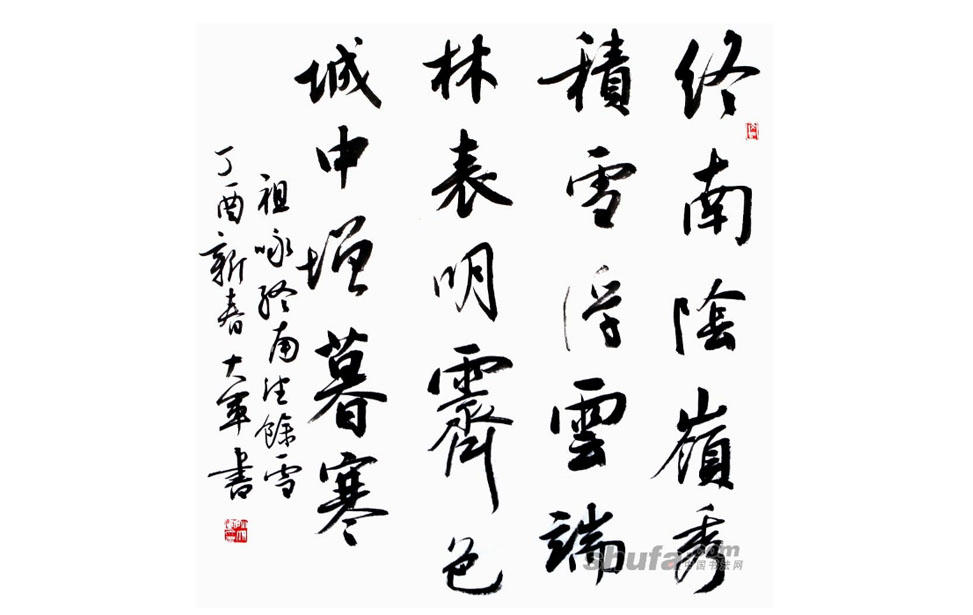 終南陰嶺秀
積雪浮雲端
林表明霽色
城中增暮寒
祖咏終南望餘雪
丁酉新春大軍書
shufa.com
中国书法网